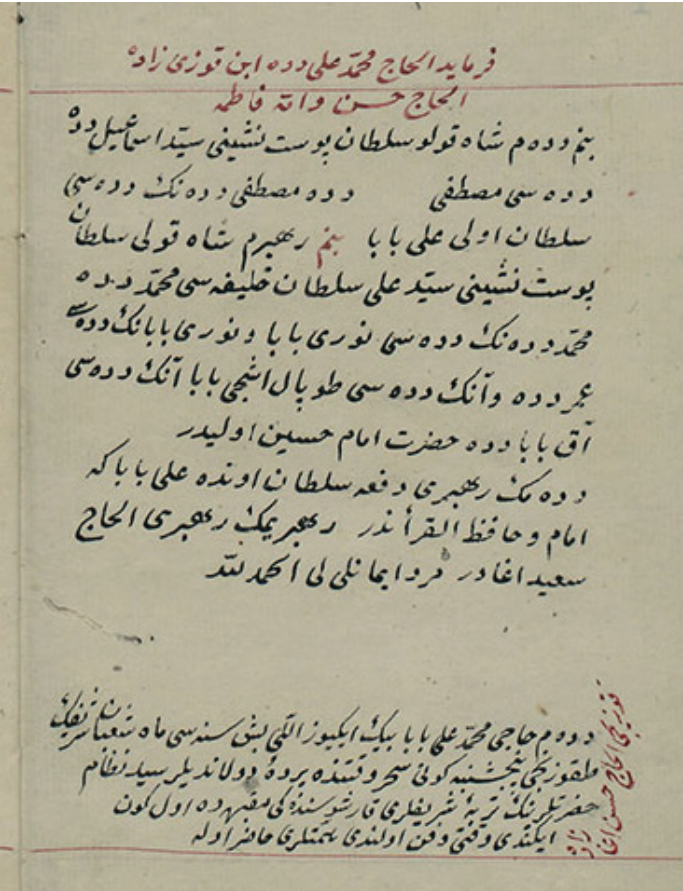 فرمايد الحاج محمّد على دده ابن قوزى زاده
الحاج حسن والله فاطمه
بنم دده م شاه قولو سلطان پوست نشينى سيّد اسماعيل دده
دده سى مصطفى دده مصطفى دده نك دده سى
سلطان اولى على بابا بنم رهبرم شاه قولى سلطان
پوست نشينى سيّد على سلطان خليفه سى محمّد دده
محمّد دده نك دده سى نورى بابا و نورى بابانك دده سى
عمر دده و آنك دده سى طوپال اشجى بابا آنك دده سى
آق بابا دده حضرت امام حسين اوليدر
دده مك رهبرى دفعه سلطان اونده على بابا كه
امام و حافظ القرأندر رهبريمك رهبرى الحاج
سعيد اغادر الحمد لله
دده م حاجى محمّد على بابا بيك ايكيوز اللى بش سنه سى ماه شعبان شريفك
طقوزنجى پنجشنبه كونى سحر وقتنده پرده دولانديلر سيد نظام
حضرتلرينك تربهٔ شريفلرى قارشوسنده كى مقبره ده اول كون
ايكندى وقتى دفن اولندى همّتلرى حاضر اوله
الحاج حسن اغا
زاده